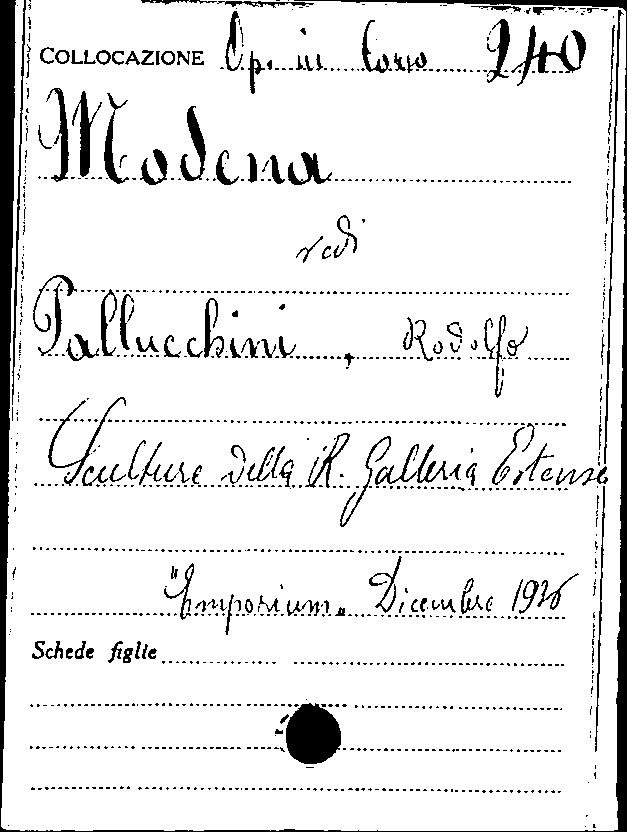 COLLOCAZIONE Op. in corso 240
Modena
vedi
Pallucchini, Rodolfo
Sculture della R. Galleria Estense
"Emporium„ Dicembre 1936
Schede figlie